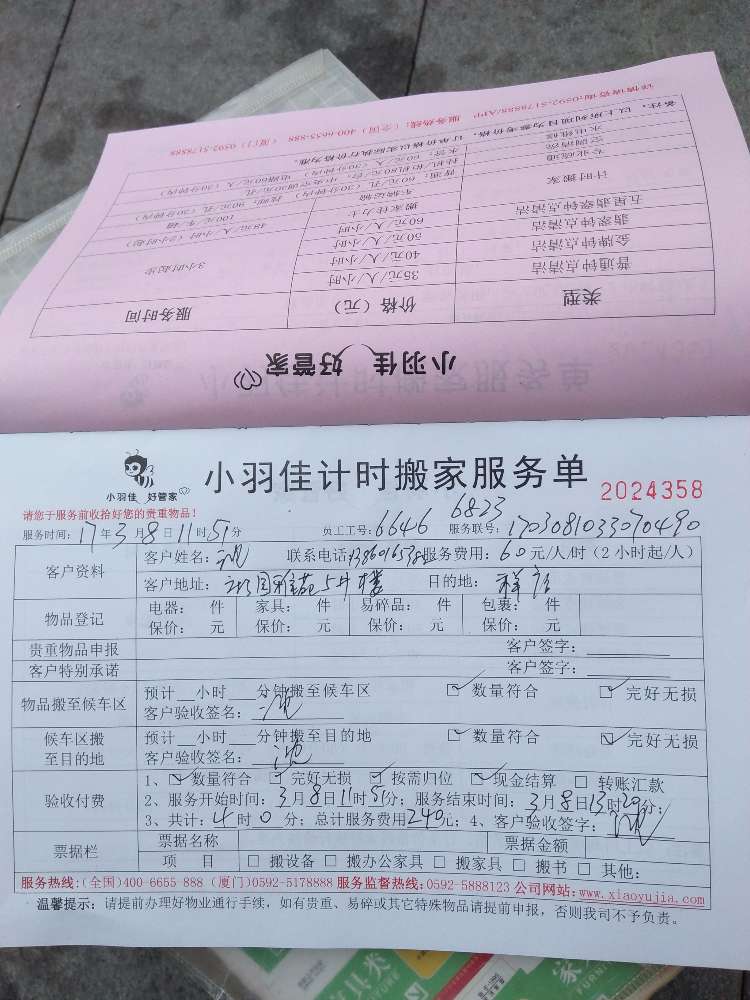 详情请咨询:0592-5178888/APP 服务热线:(全国)400-6655-888 (厦门)0592-5178888
备注:以上所列项目为参考价格,订单价格以实际执行价格为准。
小羽佳 好管家
类型 价格(元) 服务时间
普通钟点清洁 35元/人/小时 3小时起步
金牌钟点清洁 40元/人/小时
翡翠钟点清洁 50元/人/小时
五星翡翠钟点清洁 60元/人/小时
计时搬家
小羽佳 好管家
小羽佳计时搬家服务单
2024358
请您于服务前收拾好您的贵重物品!
服务时间: 17年3月8日11时51分 员工工号: 6646 6823 服务联号: 1703081033070490
客户资料 客户姓名: 联系电话: 服务费用: 60元/人/时(2小时起/人)
客户地址: 目的地:
物品登记 电器: 件 家具: 件 易碎品: 件 包裹: 件
保价: 元 保价: 元 保价: 元 保价: 元
贵重物品申报 客户签字:
客户特别承诺 客户签字:
物品搬至候车区 预计__小时__分钟搬至候车区 ☑ 数量符合 ☑ 完好无损
客户验收签名:
候车区搬至目的地 预计__小时__分钟搬至目的地 ☑ 数量符合 ☑ 完好无损
客户验收签名:
验收付费 1、☑ 数量符合 ☑ 完好无损 ☑ 按需归位 ☑ 现金结算 □ 转账汇款
2、服务开始时间: 3月8日11时51分; 服务结束时间: 3月8日13时20分;
3、共计: 4时0分; 总计服务费用240元; 4、客户验收签字:
票据栏 票据名称 票据金额
项 目 □ 搬设备 □ 搬办公家具 □ 搬家具 □ 搬书 □ 其他:
服务热线:(全国)400-6655 888 (厦门)0592-5178888 服务监督热线:0592-5888123 公司网站:www.xiaoyujia.com
温馨提示: 请提前办理好物业通行手续,如有贵重、易碎或其它特殊物品请提前申报,否则我司不予负责。